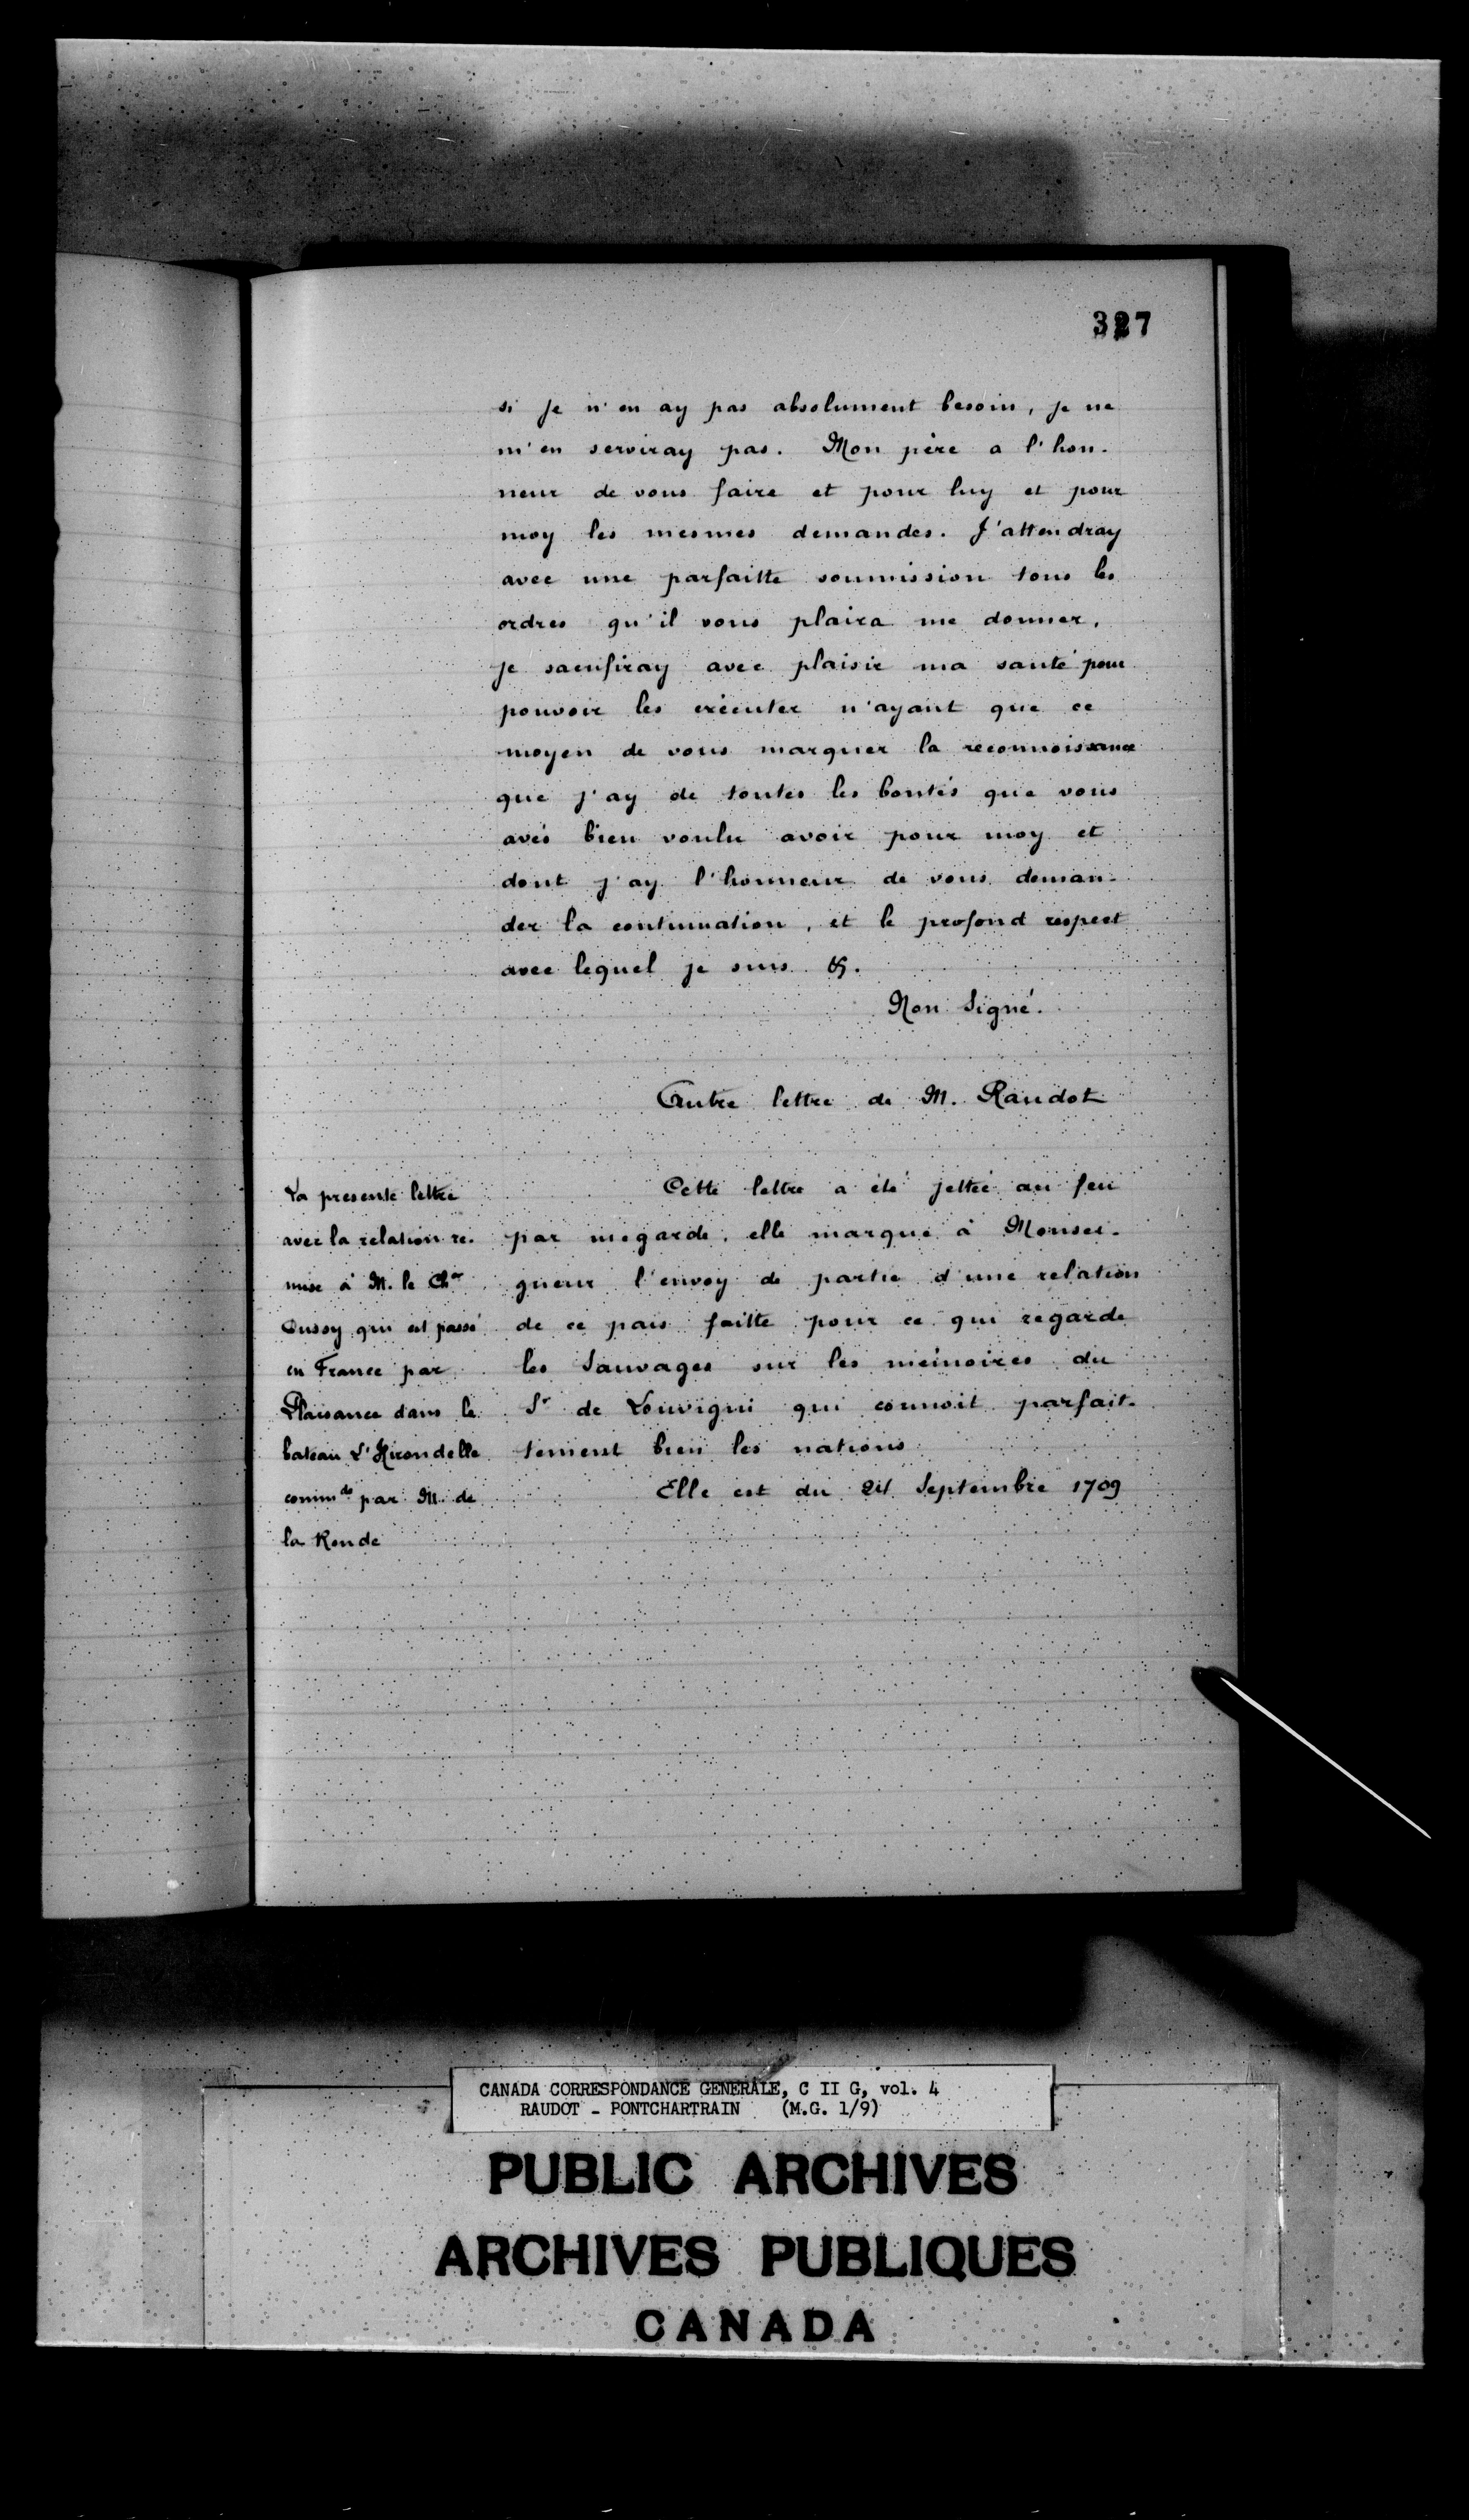 327
si je n'en ay pas absolument besoin, je ne
m'en serviray pas. Mon père a l'hon-
neur de vous faire et pour luy et pour
moy les mesmes demandes. J'attendray
avec une parfaitte soumission tous les
ordres qu'il vous plaira me donner,
je sacrifiray avec plaisir ma santé pour
pouvoir les exécuter n'ayant que ce
moyen de vous marquer la reconnoissance
que j'ay de toutes les bontés que vous
avés bien voulu avoir pour moy et
dont j'ay l'honneur de vous deman-
der la continuation, et le profond respect
avec lequel je suis &.
Non Signé.
Autre lettre de M. Raudot
La presente lettre
avec la relation re-
mise à M. le Cher
qui est passé
en France par
Plaisance dans le
bateau L'Hirondelle
commdé par M. de
la Ronde
Cette lettre a été jettée au feu
par mégarde, elle marque à Monsei-
gneur l'envoy de partie d'une relation
de ce païs faitte pour ce qui regarde
les Sauvages sur les mémoires du
Sr de Louvigni qui connoit parfait-
tement bien les nations
Elle est du 24 Septembre 1709
CANADA CORRESPONDANCE GENERALE, C II G, vol. 4
RAUDOT - PONTCHARTRAIN (M.G. 1/9)
PUBLIC ARCHIVES
ARCHIVES PUBLIQUES
CANADA